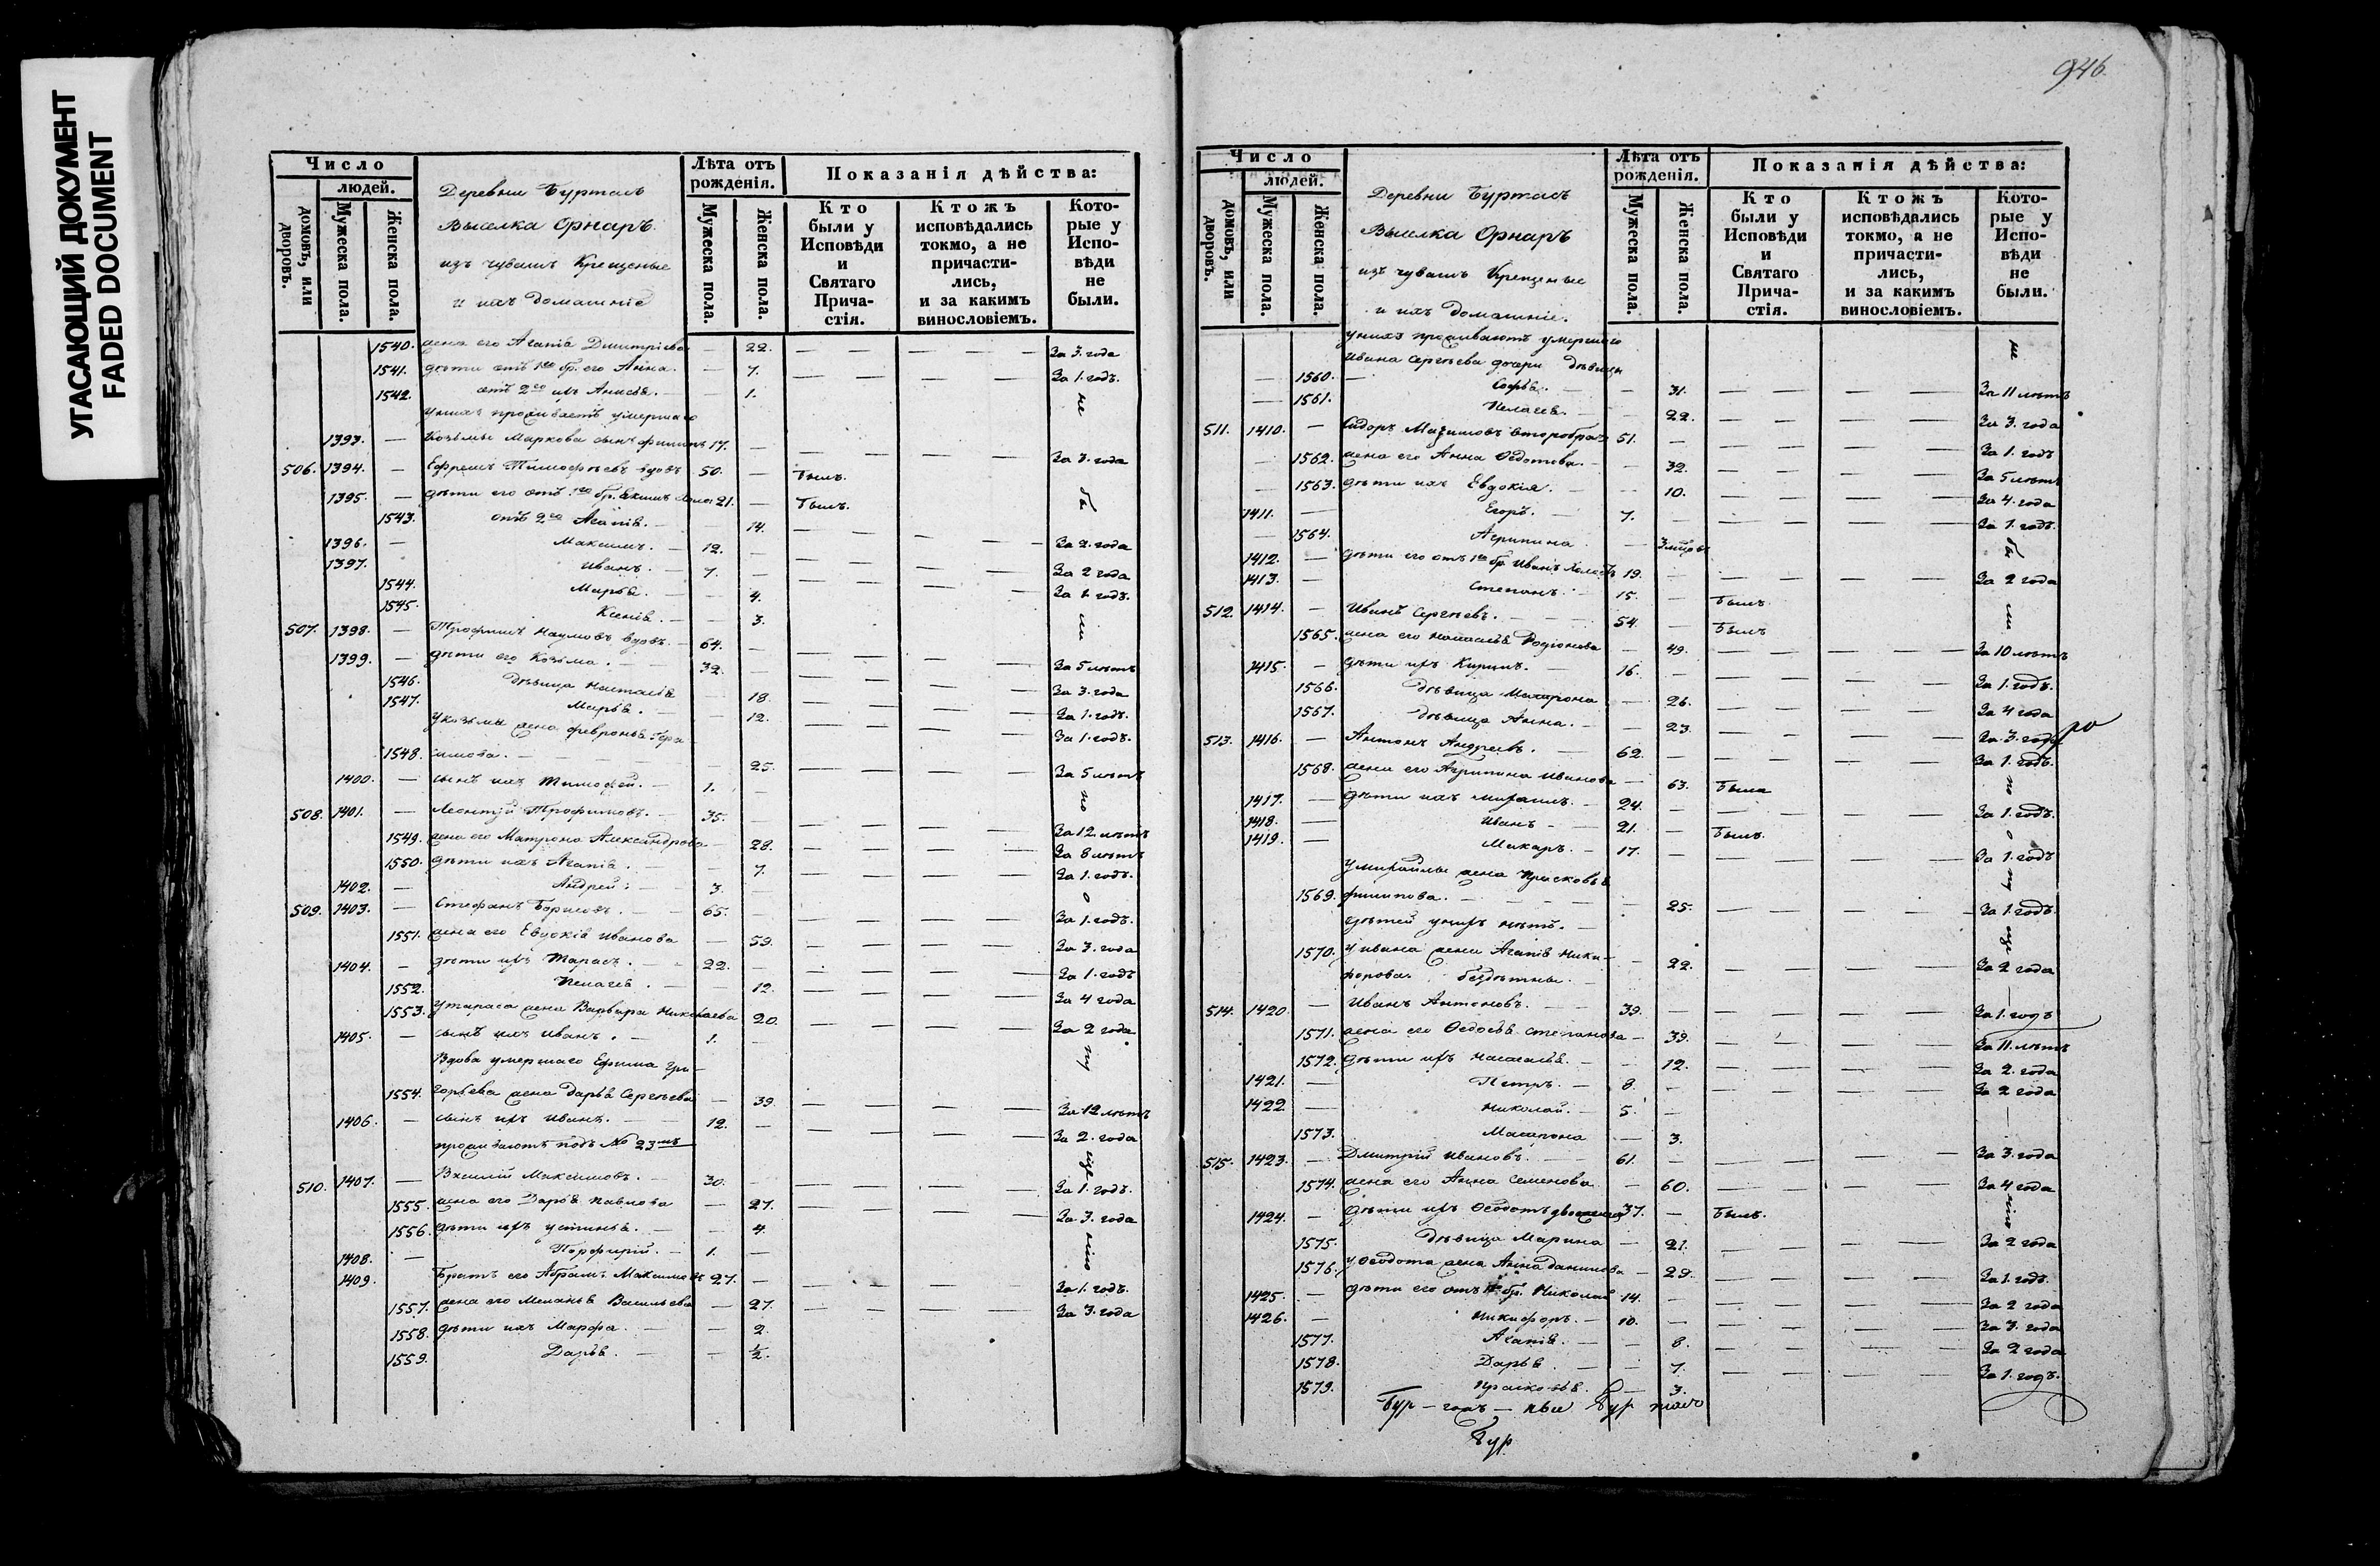 УГАСАЮЩИЙ ДОКУМЕНТ
FADED DOCUMENT
Число
домовъ, или дворовъ.
людей.
Мужеска пола.
Женска пола.
Деревни Буртасъ
Выселка Орнаръ
изъ чувашъ Крещеные
и ихъ домашніе
Лѣта отъ рожденія.
Мужеска пола.
Женска пола.
Показанія дѣйства:
Кто были у Исповѣди и Святаго Прича-стія.
Ктожъ исповѣдались токмо, а не причасти-лись, и за какимъ винословіемъ.
Кото-рые у Испо-вѣди не были.
1540. жена его Агапія Дмитріева — 22. — — — — За 3. года
1541. дѣти отъ 1го бр. его Анна. — 7. — — — — За 1. годъ.
1542. отъ 2го ихъ Анисья. — 1.
У нихъ проживаетъ умершаго
1393. — Козьмы Маркова сынъ Филипъ 17. — — — — За 3. года
506. 1394. — Ефремъ Тимофѣевъ вдовъ 50. — Былъ.
1395. — дѣти его отъ 1го бр. Екимъ Холос 21. — Былъ.
1543. отъ 2го Агапія. — 14. — — — — За 2. года
1396. — Максимъ. — 12. — — — — За 2 года
1397. Иванъ. — 7. — — — — За 1. годъ.
1544. Марья. — 4.
1545. Ксенія. — 3.
507. 1398. — Трофимъ Наумовъ вдовъ. — 64. — — — — За 5 лѣтъ
1399. — дѣти его Козьма. — 32. — — — — За 3. года
1546. дѣвица Настасья 18. — — — — За 1. годъ.
1547. Марья. — 12. — — — — За 1. годъ.
У Козьмы жена Февронья Гера-
1548. симова. — 25. — — — — За 5 лѣтъ
1400. — сынъ ихъ Тимофей. — 1. —
508. 1401. — Леонтій Трофимовъ. — 35. — — — — За 12 лѣтъ
1549. жена его Матрона Александрова — 28. — — — — За 8 лѣтъ
1550. дѣти ихъ Агапія. — 7. — — — — За 1. годъ.
1402. — Андрей. — 3. —
509. 1403. — Стефанъ Борисовъ. — 65. — — — — За 1. годъ.
1551. жена его Евдокія Иванова — 59. — — — — За 3. года
1404. — дѣти ихъ Тарасъ. — 22. — — — — За 1. годъ
1552. Пелагея. — 12. — — — — За 4 года
1553. У Тараса жена Варвара Николаева 20. — — — — За 2 года
1405. — сынъ ихъ Иванъ. — 1. —
Вдова умершаго Ефима Гри-
1554. горьева жена Дарья Сергѣева — 39. — — — — За 12 лѣтъ
1406. — сынъ ихъ Иванъ. — 12. — — — — За 2. года
проживаютъ подъ № 23мъ
510. 1407. — Василій Максимовъ. — 30. — — — — За 1. годъ.
1555. жена его Дарья Павлова — 27. — — — — За 3. года
1556. дѣти ихъ Устинья. — 4.
1408. — Порфирій. — 1. —
1409. Братъ его Абрамъ Максимовъ 27. — — — — За 1. годъ.
1557. жена его Меланья Васильева — 27. — — — — За 3. года
1558. дѣти ихъ Марфа. — 2.
1559. Дарья. — ½.
946.
Число
домовъ, или дворовъ.
людей.
Мужеска пола.
Женска пола.
Деревни Буртасъ
Выселка Орнаръ
изъ чувашъ Крещеные
и ихъ домашніе.
Лѣта отъ рожденія.
Мужеска пола.
Женска пола.
Показанія дѣйства:
Кто были у Исповѣди и Святаго Прича-стія.
Ктожъ исповѣдались токмо, а не причасти-лись, и за какимъ винословіемъ.
Кото-рые у Испо-вѣди не были.
У нихъ проживаютъ умершаго
Ивана Сергѣева дочери дѣвицы
1560. Софья. — 31. — — — — За 11 лѣтъ
1561. Пелагея. — 22. — — — — За 3. года
511. 1410. — Сидоръ Максимовъ второбрач 51. — — — — За 1. годъ
1562. жена его Анна Федотова. — 32. — — — — За 5 лѣтъ
1563. дѣти ихъ Евдокія. — 10. — — — — За 4. года
1411. — Егоръ. — 7. — — — — За 1. годъ.
1564. Агрипина — 3 мѣсяц
1412. — дѣти его отъ 1го бр. Иванъ Холостъ 19. — — — — За 2 года
1413. — Степанъ. — 15. — Былъ.
512. 1414. — Иванъ Сергѣевъ. — 54. — Былъ
1565. жена его Настасья Родіонова — 49. — — — — За 10 лѣтъ
1415. — дѣти ихъ Кирилъ. — 16. — — — — За 1. годъ.
1566. дѣвица Матрона — 26. — — — — За 4 года
1567. дѣвица Анна. — 23. — — — — За 3. года
513. 1416. — Антонъ Андреевъ. — 62. — — — — За 1. годъ.
1568. жена его Агрипина Иванова — 63. Была
1417. — дѣти ихъ Михаилъ. — 24. — — — — За 1. годъ.
1418. — Иванъ — 21. — Былъ.
1419. — Макаръ. — 17. — — — — За 1. годъ
У Михайлы жена Прасковья
1569. Филипова. — 25. — — — — За 1. годъ.
дѣтей у нихъ нѣтъ. —
1570. У Ивана жена Агапія Ники- — 22. — — — — За 2 года
форова. бездѣтны. —
514. 1420. — Иванъ Антоновъ. — 39. — — — — За 1. годъ
1571. жена его Федосья Степанова — 39. — — — — За 11. лѣтъ
1572. дѣти ихъ Настасья. — 12. — — — — За 2. года
1421. — Петръ. — 8. — — — — За 2 года
1422. — Николай. — 5. —
1573. Матрона — 3.
515. 1423. — Дмитрій Ивановъ. — 61. — — — — За 3. года
1574. жена его Анна Семенова. — 60. — — — — За 4 года
1424. — дѣти ихъ Федотъ 37. — Былъ.
1575. дѣвица Марина — 21. — — — — За 2 года
1576. У Федота жена Анна Данилова — 29. — — — — За 1. годъ.
1425. — дѣти его отъ 1го бр. Николай 14. — — — — За 2 года
1426. — Никифоръ. — 10. — — — — За 3. года
1577. Агапія. — 8. — — — — За 2 года
1578. Дарья — 7. — — — — За 1. годъ.
1579. Прасковья. — 3.